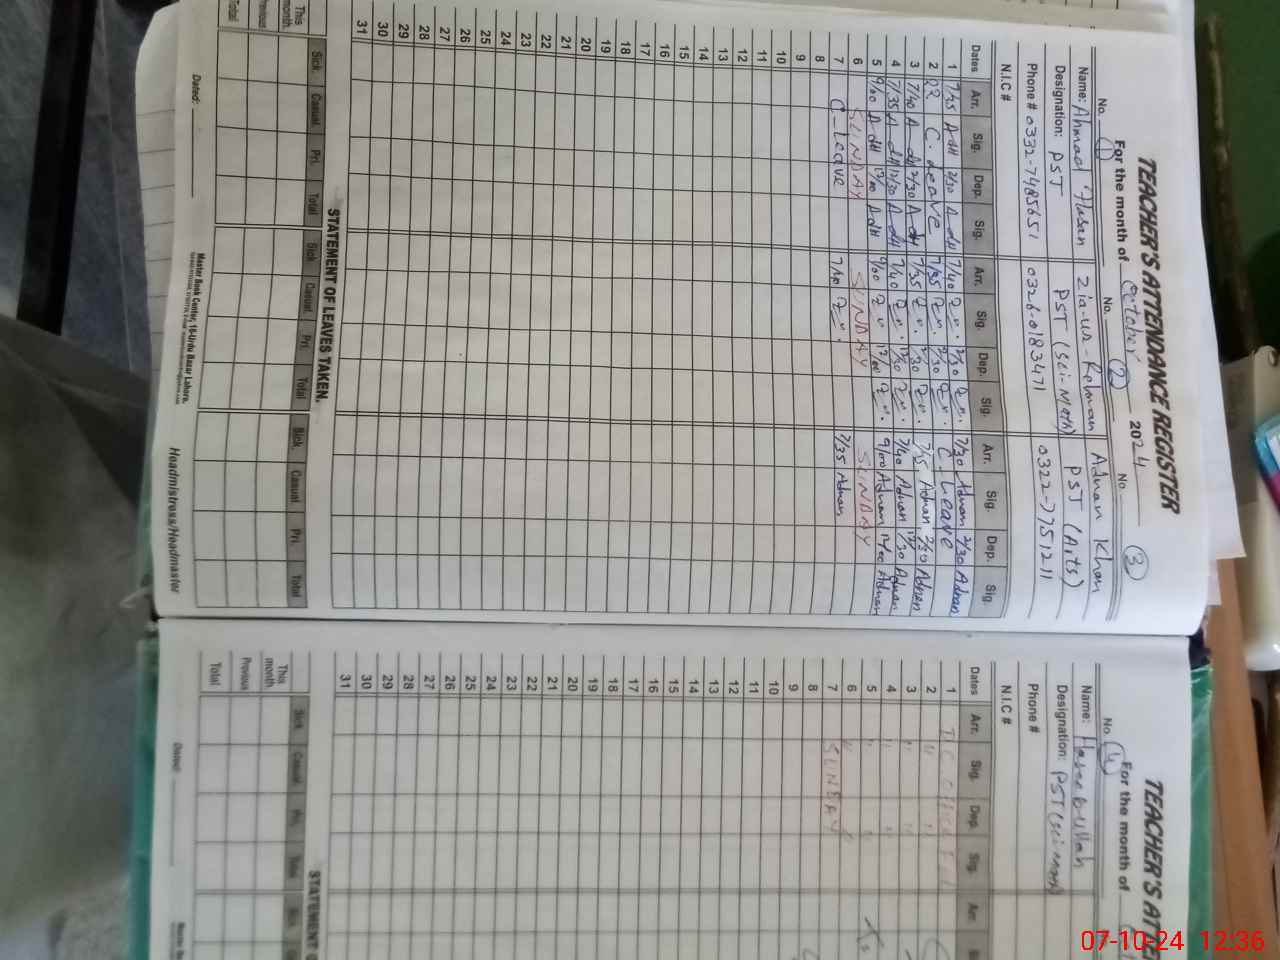 TEACHER'S ATTENDANCE REGISTER
For the month of October 2024
No. (1) No. (2) No. (3)
Name: Ahmad Hasan Zia-ur-Rehman Adnan Khan
Designation: PST PST (Sci-Math) PST (Arts)
Phone # 0332-7485651 0326-0183471 0322-7751211
N.I.C #
Dates Arr. Sig. Dep. Sig. Arr. Sig. Dep. Sig. Arr. Sig. Dep. Sig.
1 7/35 A-dH 2/30 A-dH 7/40 2/30 7/30 Adnan 2/30 Adnan
2 C. Leave 7/35 2/30 C-Leave
3 7/40 A-dH 2/30 A-dH 7/35 2/30 7/35 Adnan 2/30 Adnan
4 7/35 A-dH 12/30 A-dH 7/40 12/30 7/40 Adnan 12/30 Adnan
5 9/00 A-dH 12/00 A-dH 9/00 12/00 9/00 Adnan 12/00 Adnan
6 SUNDAY SUNDAY SUNDAY
7 C-Leave 7/40 7/35 Adnan
8
9
10
11
12
13
14
15
16
17
18
19
20
21
22
23
24
25
26
27
28
29
30
31
STATEMENT OF LEAVES TAKEN.
Sick. Casual. Pri. Total Sick Casual. Pri. Total Sick. Casual. Pri. Total
This month.
Previous
Total
Dated:
Master Book Center, 16-Urdu Bazar Lahore.
Headmistress/Headmaster
TEACHER'S ATTE
For the month of
No. (4)
Name: Hasanbullah
Designation: PST (Sci-Math)
Phone #
N.I.C #
Dates Arr. Sig. Dep. Sig. Arr.
1
2 " "
3 " "
4 " "
5 " "
6
7 SUNDAY
8
9
10
11
12
13
14
15
16
17
18
19
20
21
22
23
24
25
26
27
28
29
30
31
STATEMENT
Sick. Casual. Pri. Total Sick
This month.
Previous
Total
Dated:
07-10-24 12:36